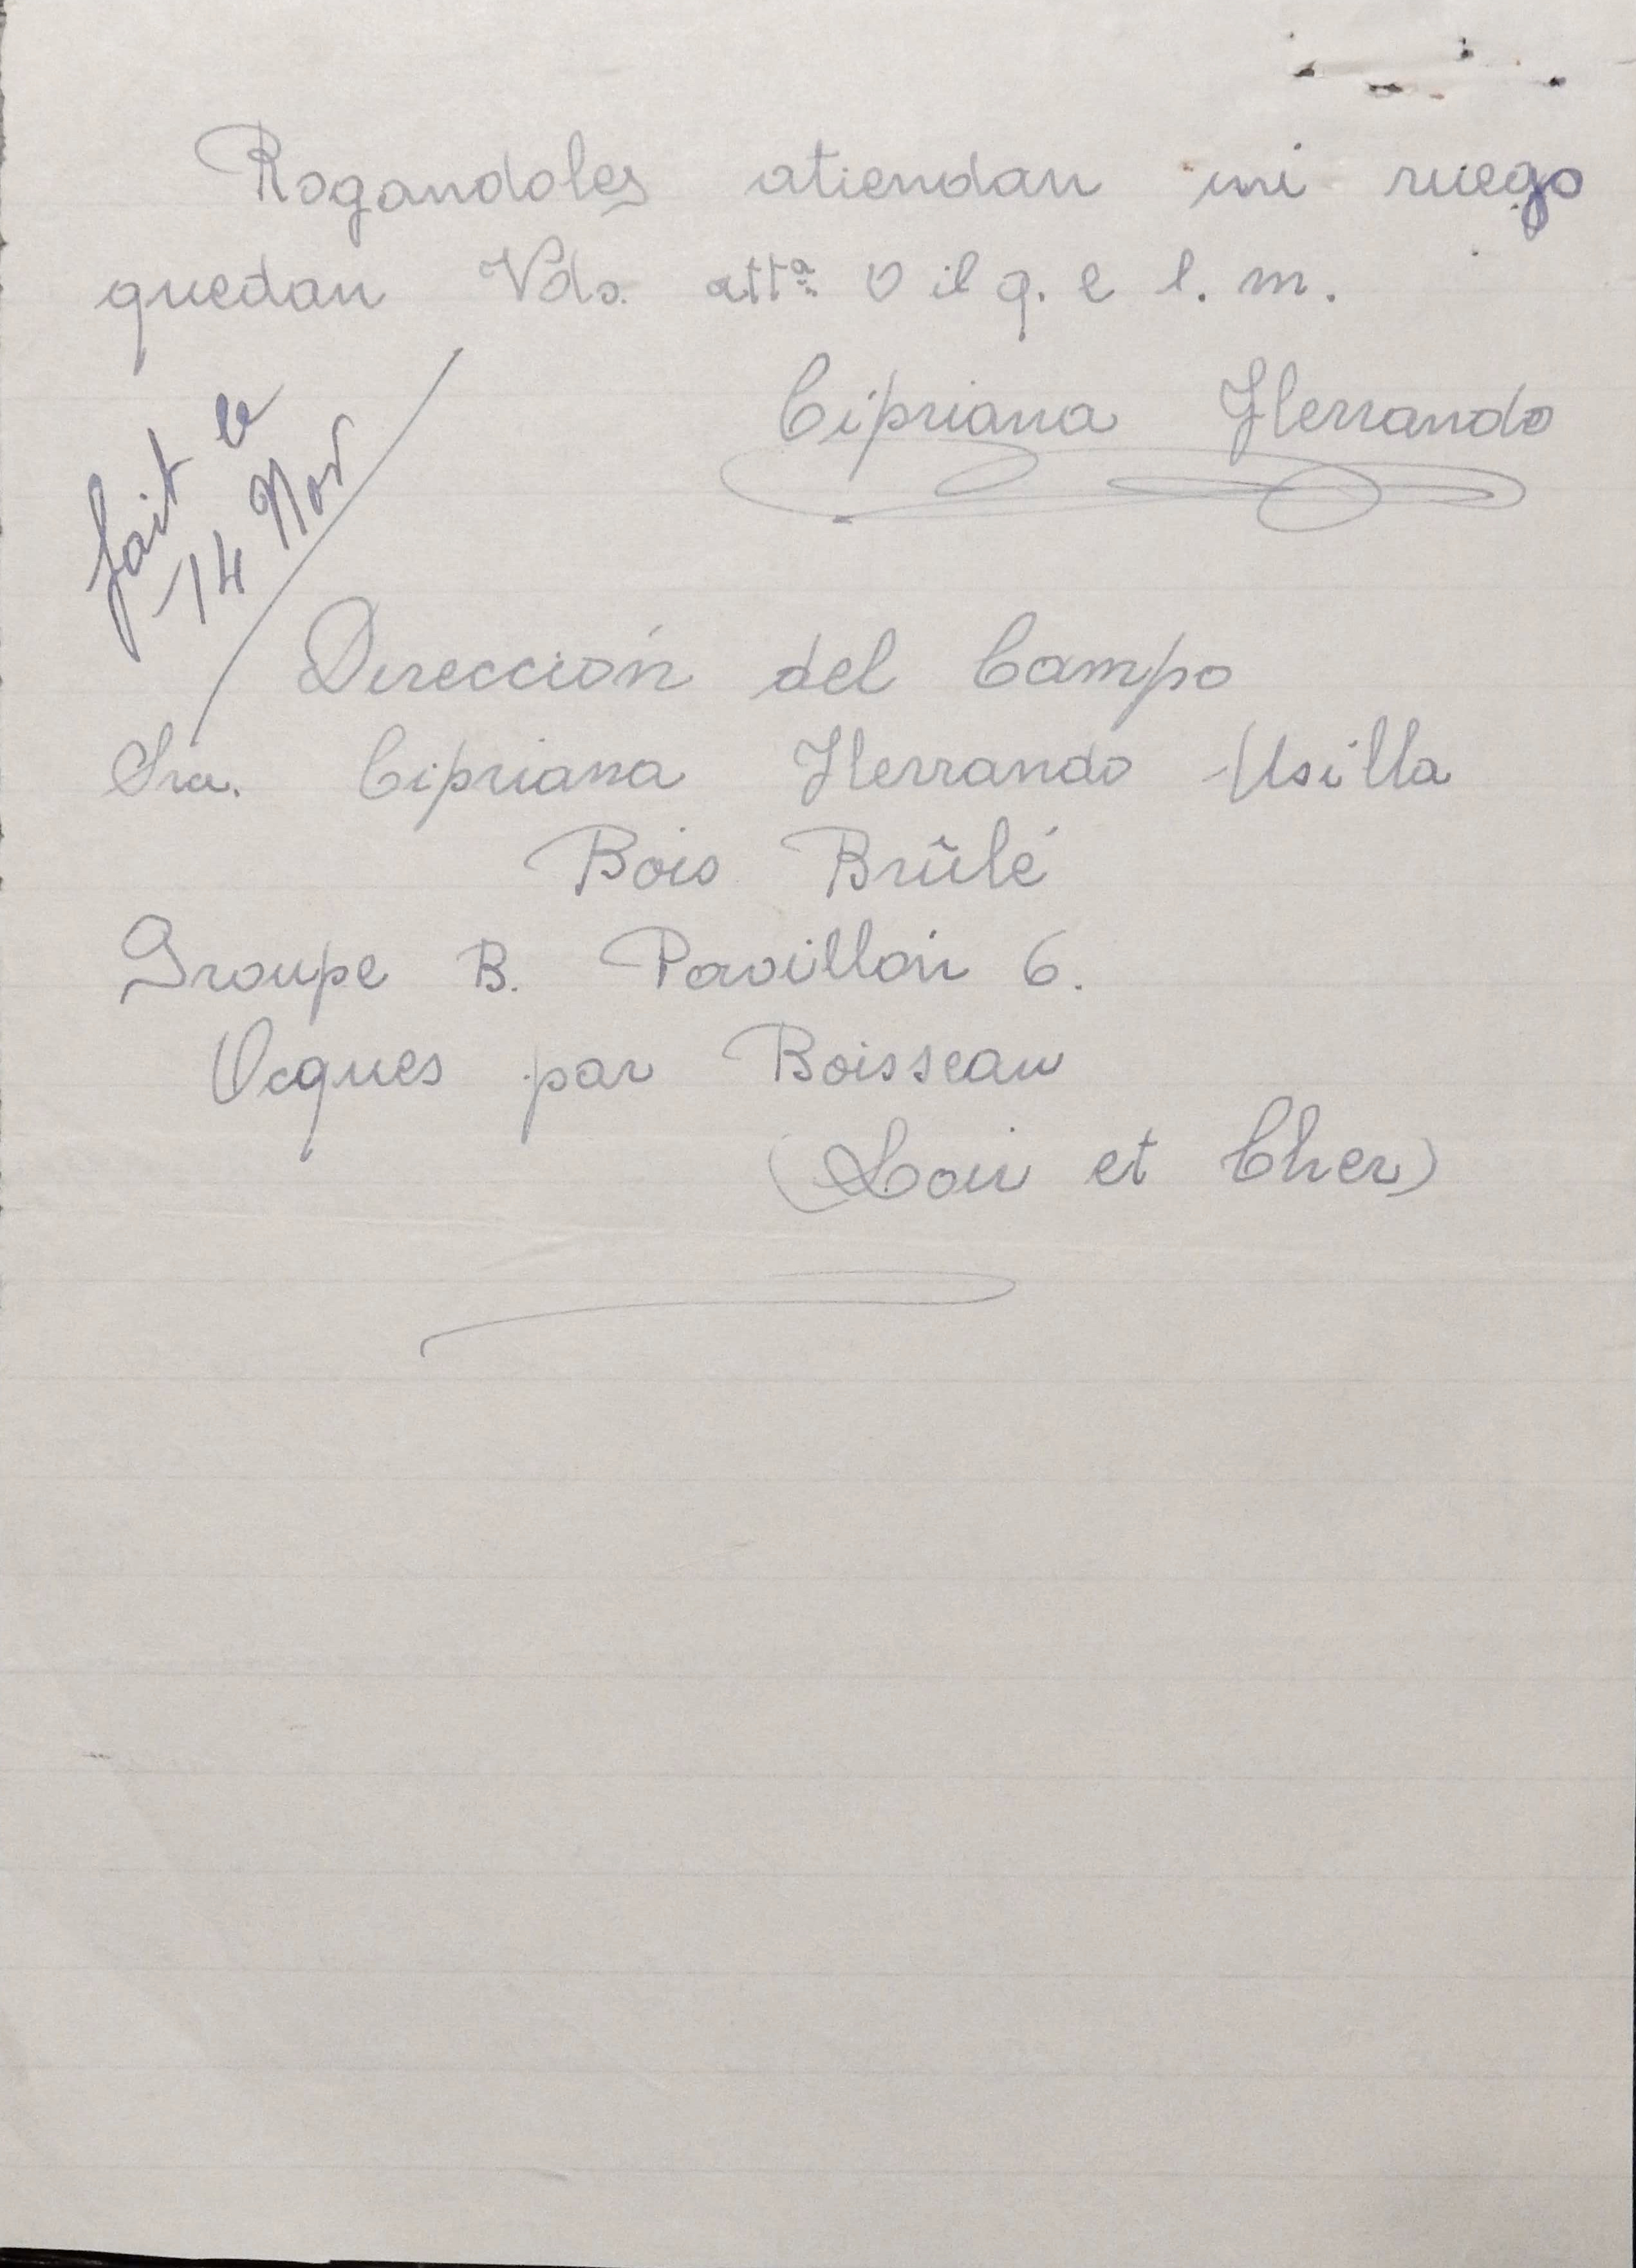 Rogandoles atiendan mi ruego
quedan Vds. attª v il q. e l. m.
Cipriana Herrando
fait le
14 Nov
Dirección del Campo
Sra. Cipriana Herrando Usilla
Bois Brûlé
Groupe B. Pavillon 6.
Ocques par Boisseau
(Loir et Cher)